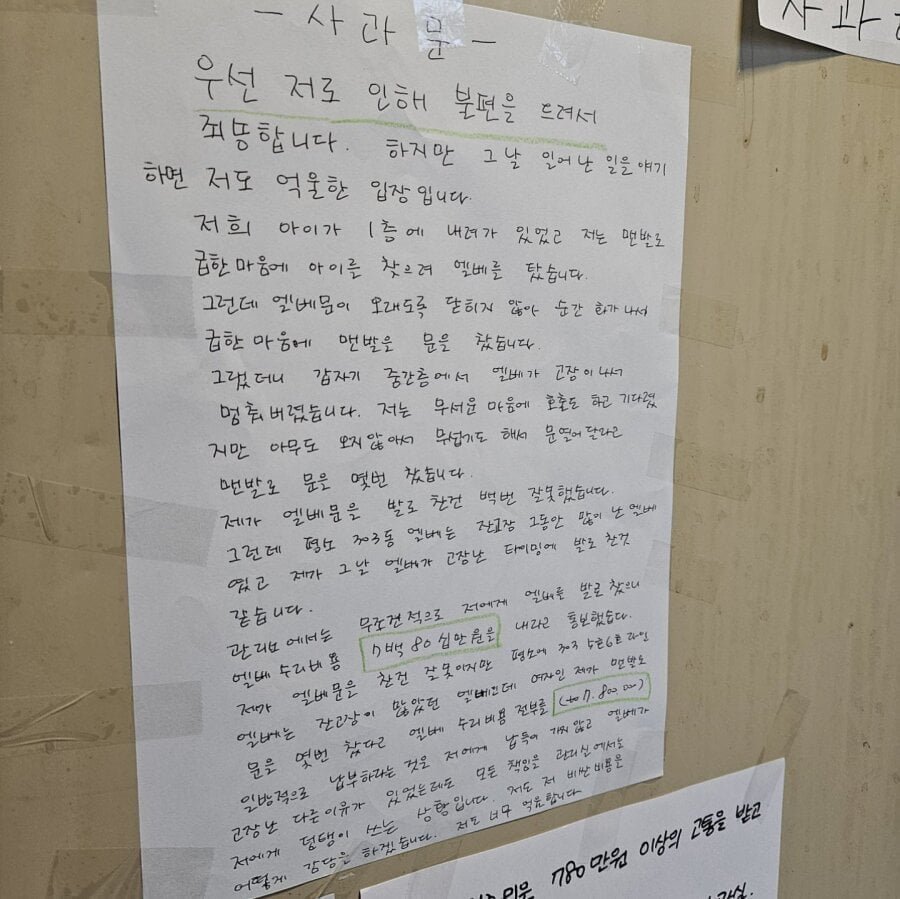 - 사 과 문 -
우선 저로 인해 불편을 드려서
죄송합니다. 하지만 그날 일어난 일을 얘기
하면 저도 억울한 입장입니다.
저희 아이가 1층에 내려가 있었고 저는 맨발로
급한마음에 아이를 찾으려 엘베를 탔습니다.
그런데 엘베문이 오래도록 닫히지 않아 순간 화가나서
급한마음에 맨발을 문을 찼습니다.
그랬더니 갑자기 중간층에서 엘베가 고장이나서
멈춰버렸습니다. 저는 무서운 마음에 호출도 하고 기다렸
지만 아무도 오지않아서 무섭기도 해서 문열어달라고
맨발로 문을 몇번 찼습니다.
제가 엘베문을 발로 찬건 백번 잘못했습니다.
그런데 평소 303동 엘베는 잔고장 그동안 많이 난 엘베
였고 제가 그날 엘베가 고장난 타이밍에 발로 찬것
같습니다.
관리소에서는 무조건적으로 저에게 엘베를 발로 찼으니
엘베 수리비용 7백 80십만원을 내라고 통보했습다.
제가 엘베문을 찬건 잘못이지만 평소에 303 5호6호라인
엘베는 잔고장이 많았던 엘베인데 여자인 제가 맨발로
문을 몇번 찼다고 엘베 수리비용 전부를
일방적으로 납부하라는 것은 저에게 납득이 가지않고 엘베가
고장난 다른이유가 있었는데도 모든 책임을 관리실에서는
저에게 덤탱이 쓰는 상황입니다. 저도 저 비싼비용을
어떻게 감당을 하겠습니다. 저도 너무 억울합니다
사과
780만원 이상의 고통을 받고